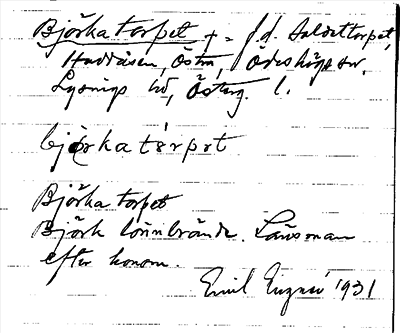 Björkatorpet t = f.d. soldattorpet,
Haddåsen, Östra, Ödeshögs sn,
Lysings hd, Österg. l.
björkatɵrpɛt
Björkatorpet
Björk lönnbrände. Länsman
efter honom.
Emil 1931